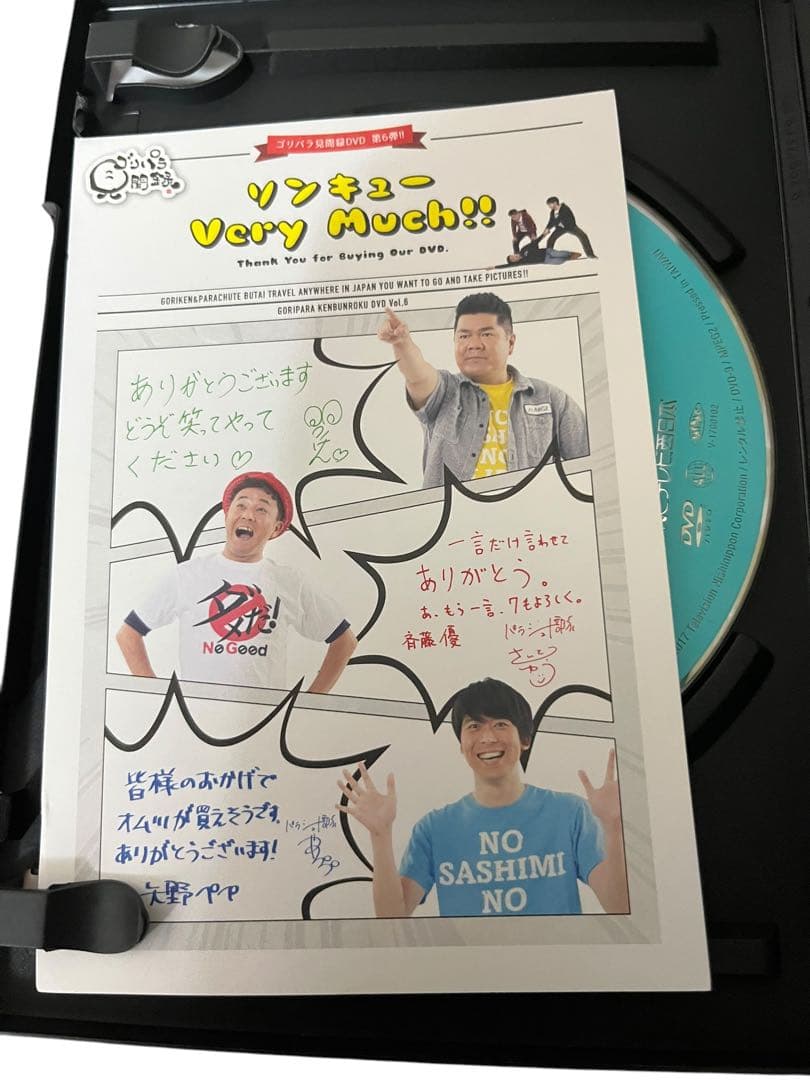 ゴリパラ見聞録DVD 第6弾!!
ゴリパラ
見聞録
ソンキュー
Very Much!!
Thank You for Buying Our DVD.
GORIKEN&PARACHUTE BUTAI TRAVEL ANYWHERE IN JAPAN YOU WANT TO GO AND TAKE PICTURES!!
GORIPARA KENBUNROKU DVD Vol.6
ありがとうございます
どうぞ笑ってやって
ください♡
ダメだ!
No Good
一言だけ言わせて
ありがとう。
あ、もう一言、7もよろしく。
斉藤優
パラシュート部隊
さいとう
ゆう
皆様のおかげで
オムツが買えそうです。
ありがとうございます!
矢野ペペ
パラシュート部隊
NO
SASHIMI
NO
DVD
V-1700102
2017 Television Nishinippon Corporation / レンタル禁止 / DVD-9 / MPEG2 / Pressed in TAIWAN